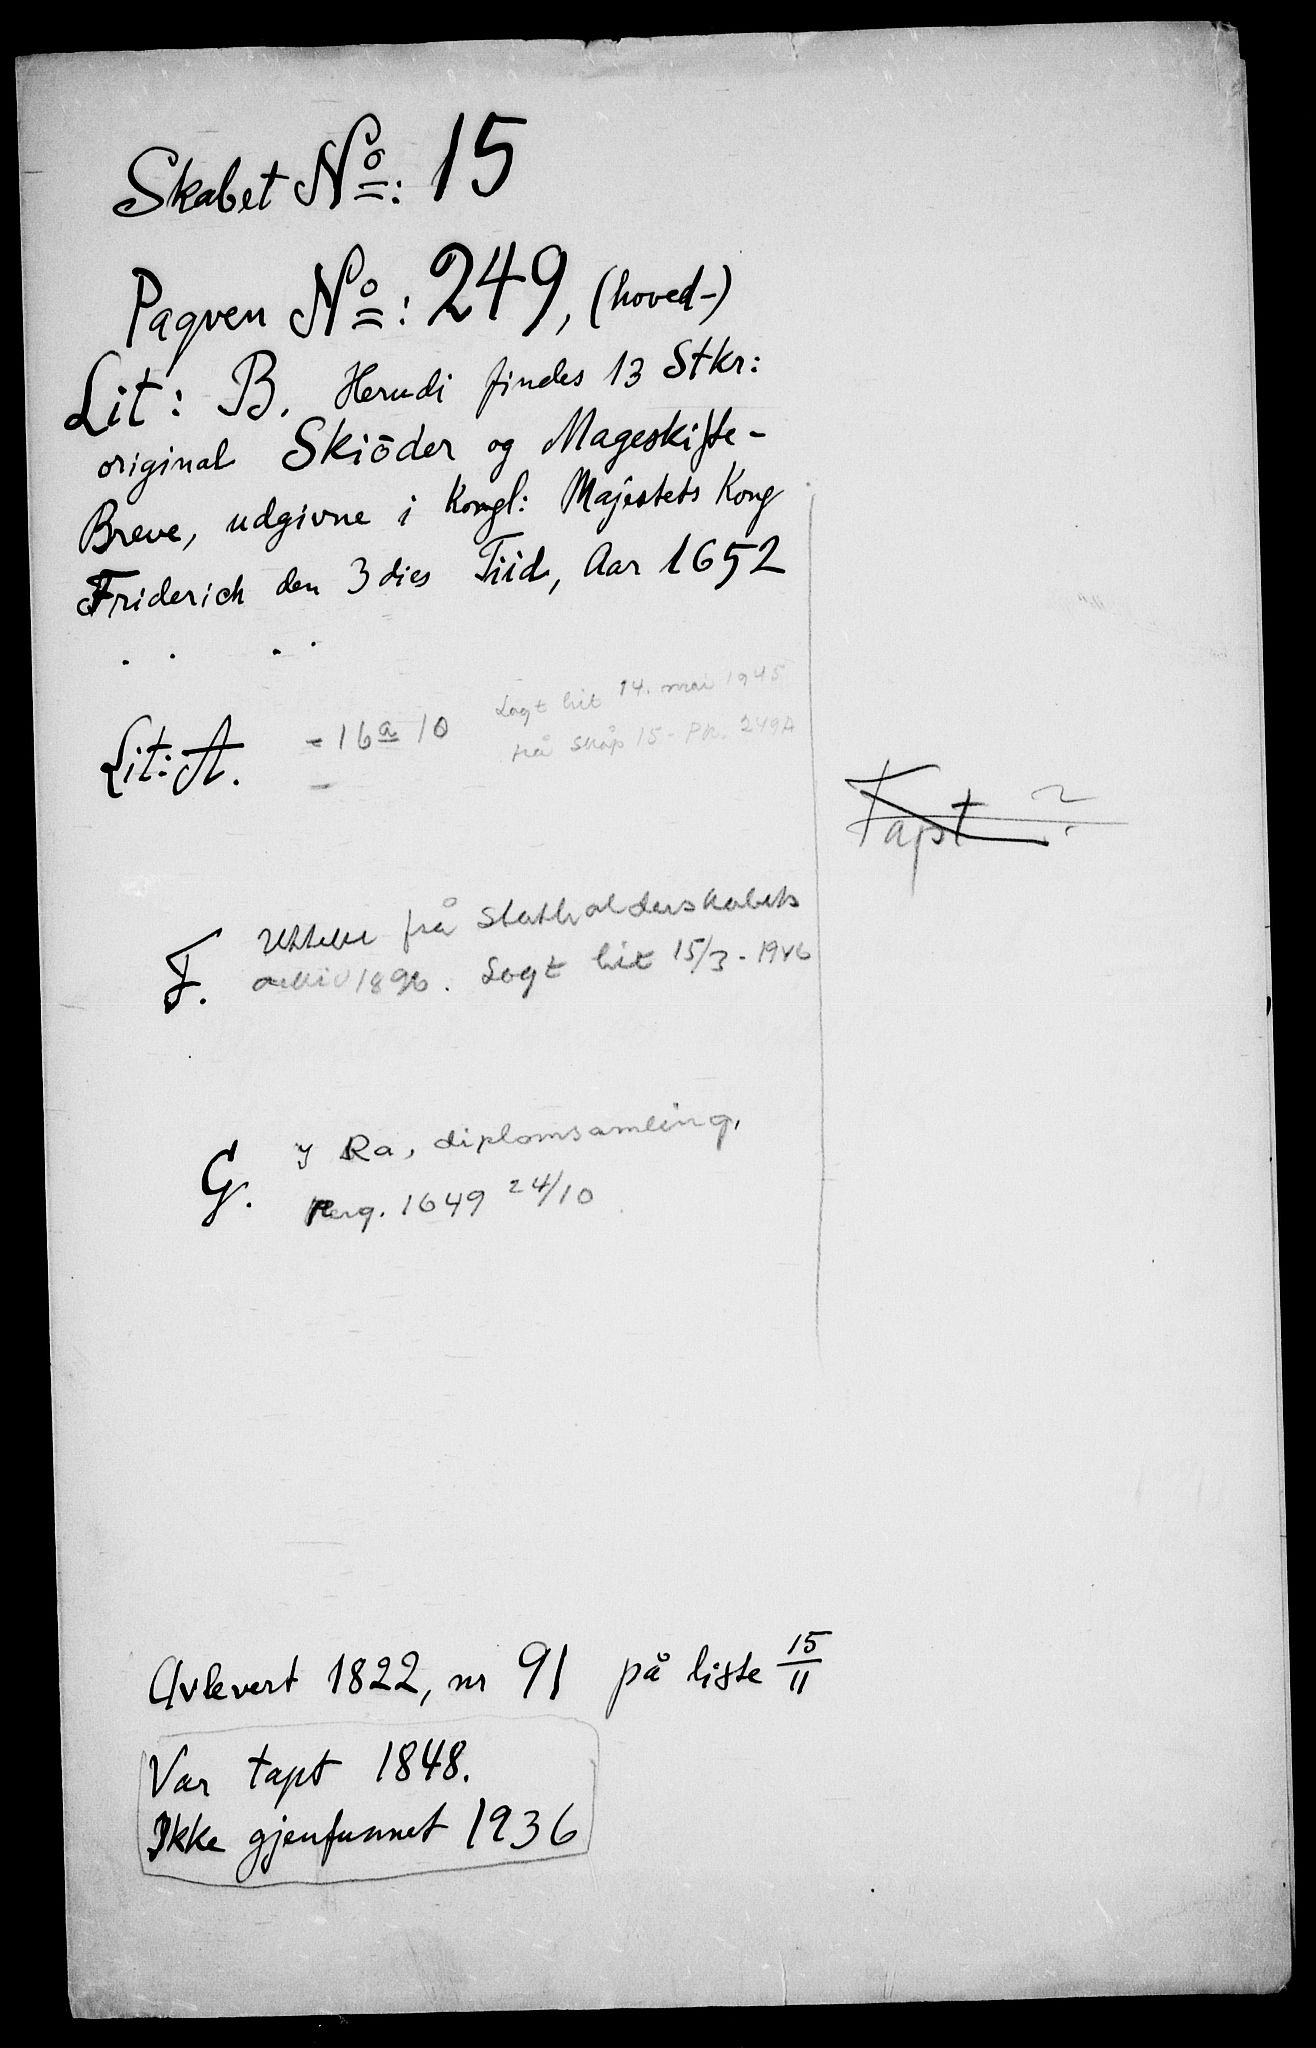 Skabet No: 15
Paqven No: 249, (hoved-)
Lit: B. Herudi findes 13 Stkr:
original Skiöder og Mageskifte-
Breve, udgivne i Kongl: Majestets Kong
Friderich den 3dies Tiid, Aar 1652
. . . .
Lit: A. = 16 a 10
Lagt hit 14. mai 1945
frå skåp 15 - Pk. 249A
Tapt ?
F. frå Statholderskabets
1896. Lagt hit 15/3 - 1946
G. I Ra, diplomsamling,
Perg. 1649 24/10
Avlevert 1822, nr 91 på liste 15/11
Var tapt 1848.
Ikke gjenfunnet 1936